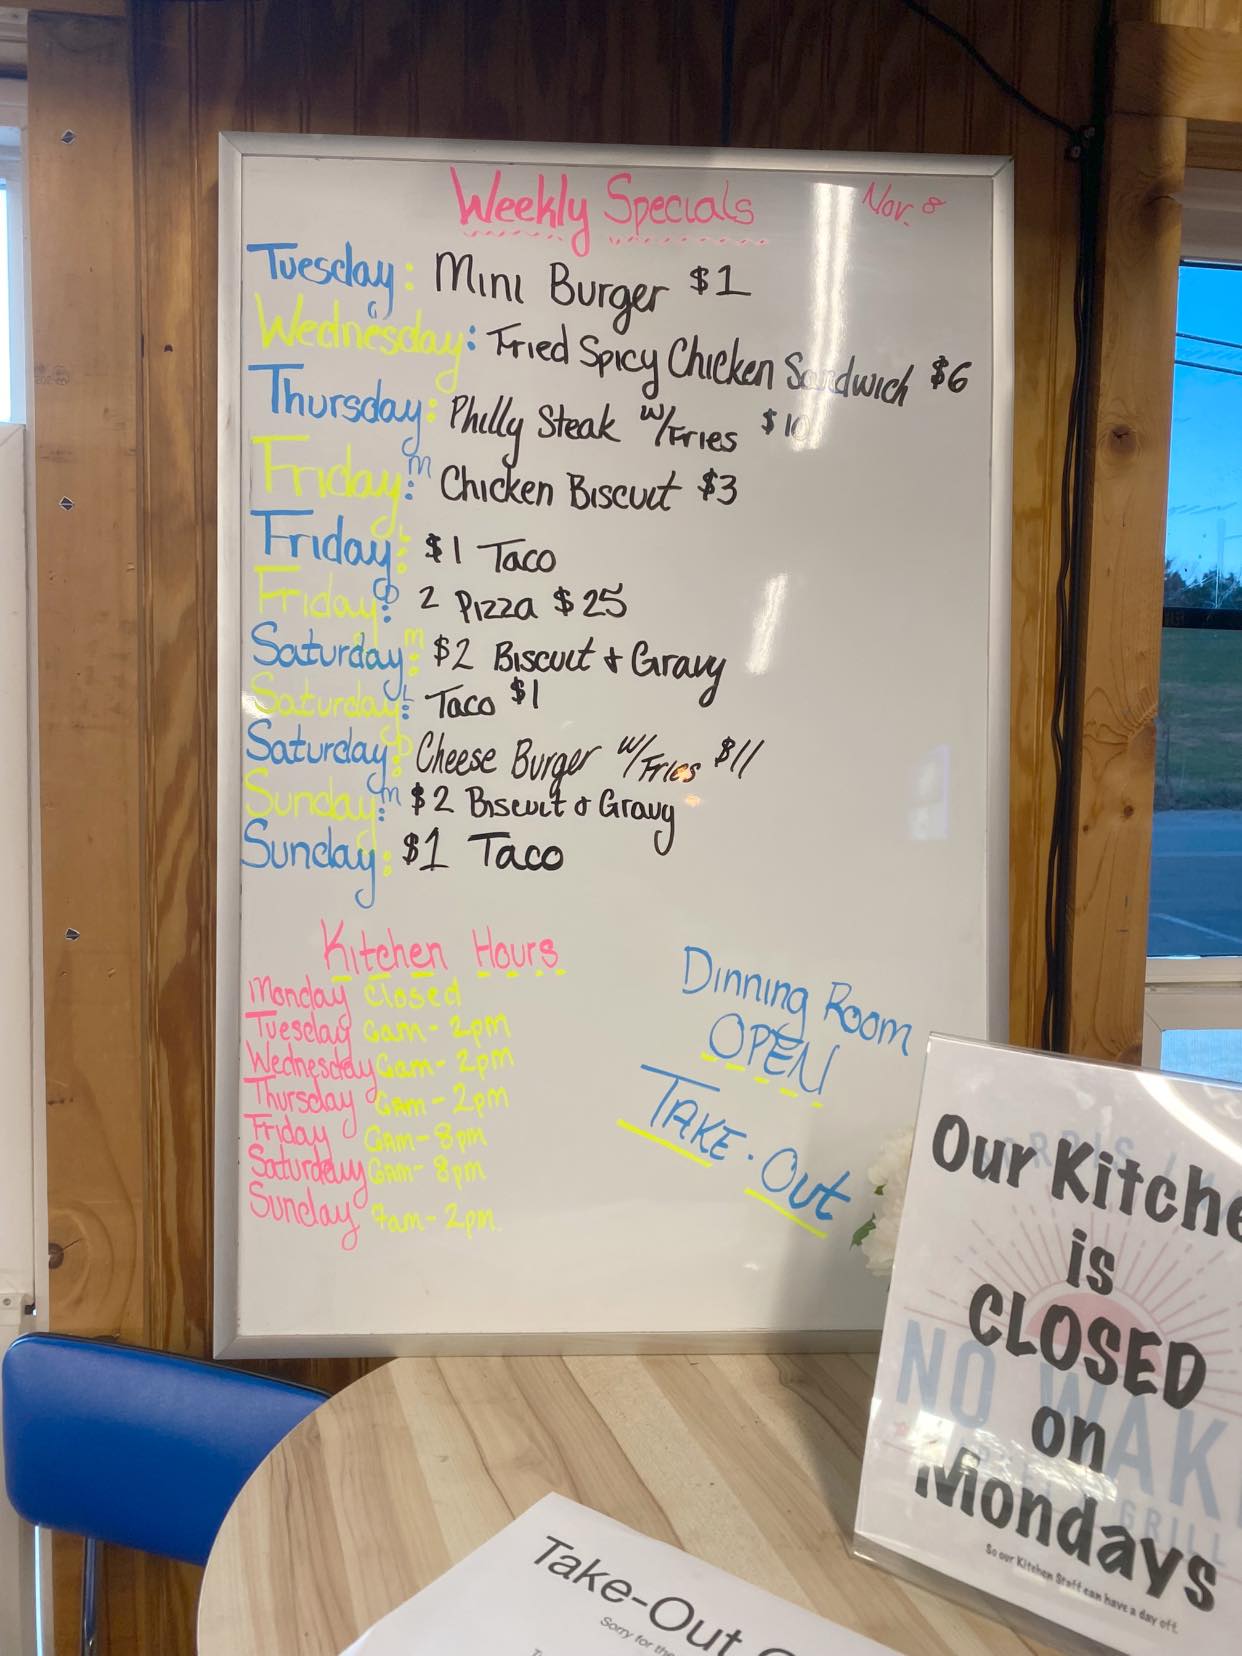 Weekly Specials Nov. 8
Tuesday: Mini Burger $1
Wednesday: Fried Spicy Chicken Sandwich $6
Thursday: Philly Steak w/Fries $10
Friday M: Chicken Biscuit $3
Friday L: $1 Taco
Friday D: 2 Pizza $25
Saturday M: $2 Biscuit & Gravy
Saturday L: Taco $1
Saturday D: Cheese Burger w/Fries $11
Sunday M: $2 Biscuit & Gravy
Sunday: $1 Taco
Kitchen Hours
Monday Closed
Tuesday 6am-2pm
Wednesday 6am-2pm
Thursday 6Am-2pm
Friday 6Am-8pm
Saturday 6Am-8pm
Sunday 7am-2pm
Dinning Room
OPEN
TAKE-Out
Our Kitche
is
CLOSED
on
Mondays
So our Kitchen Staff can have a day off.
NO WAK
GRILL
Take-Out
Sorry for the